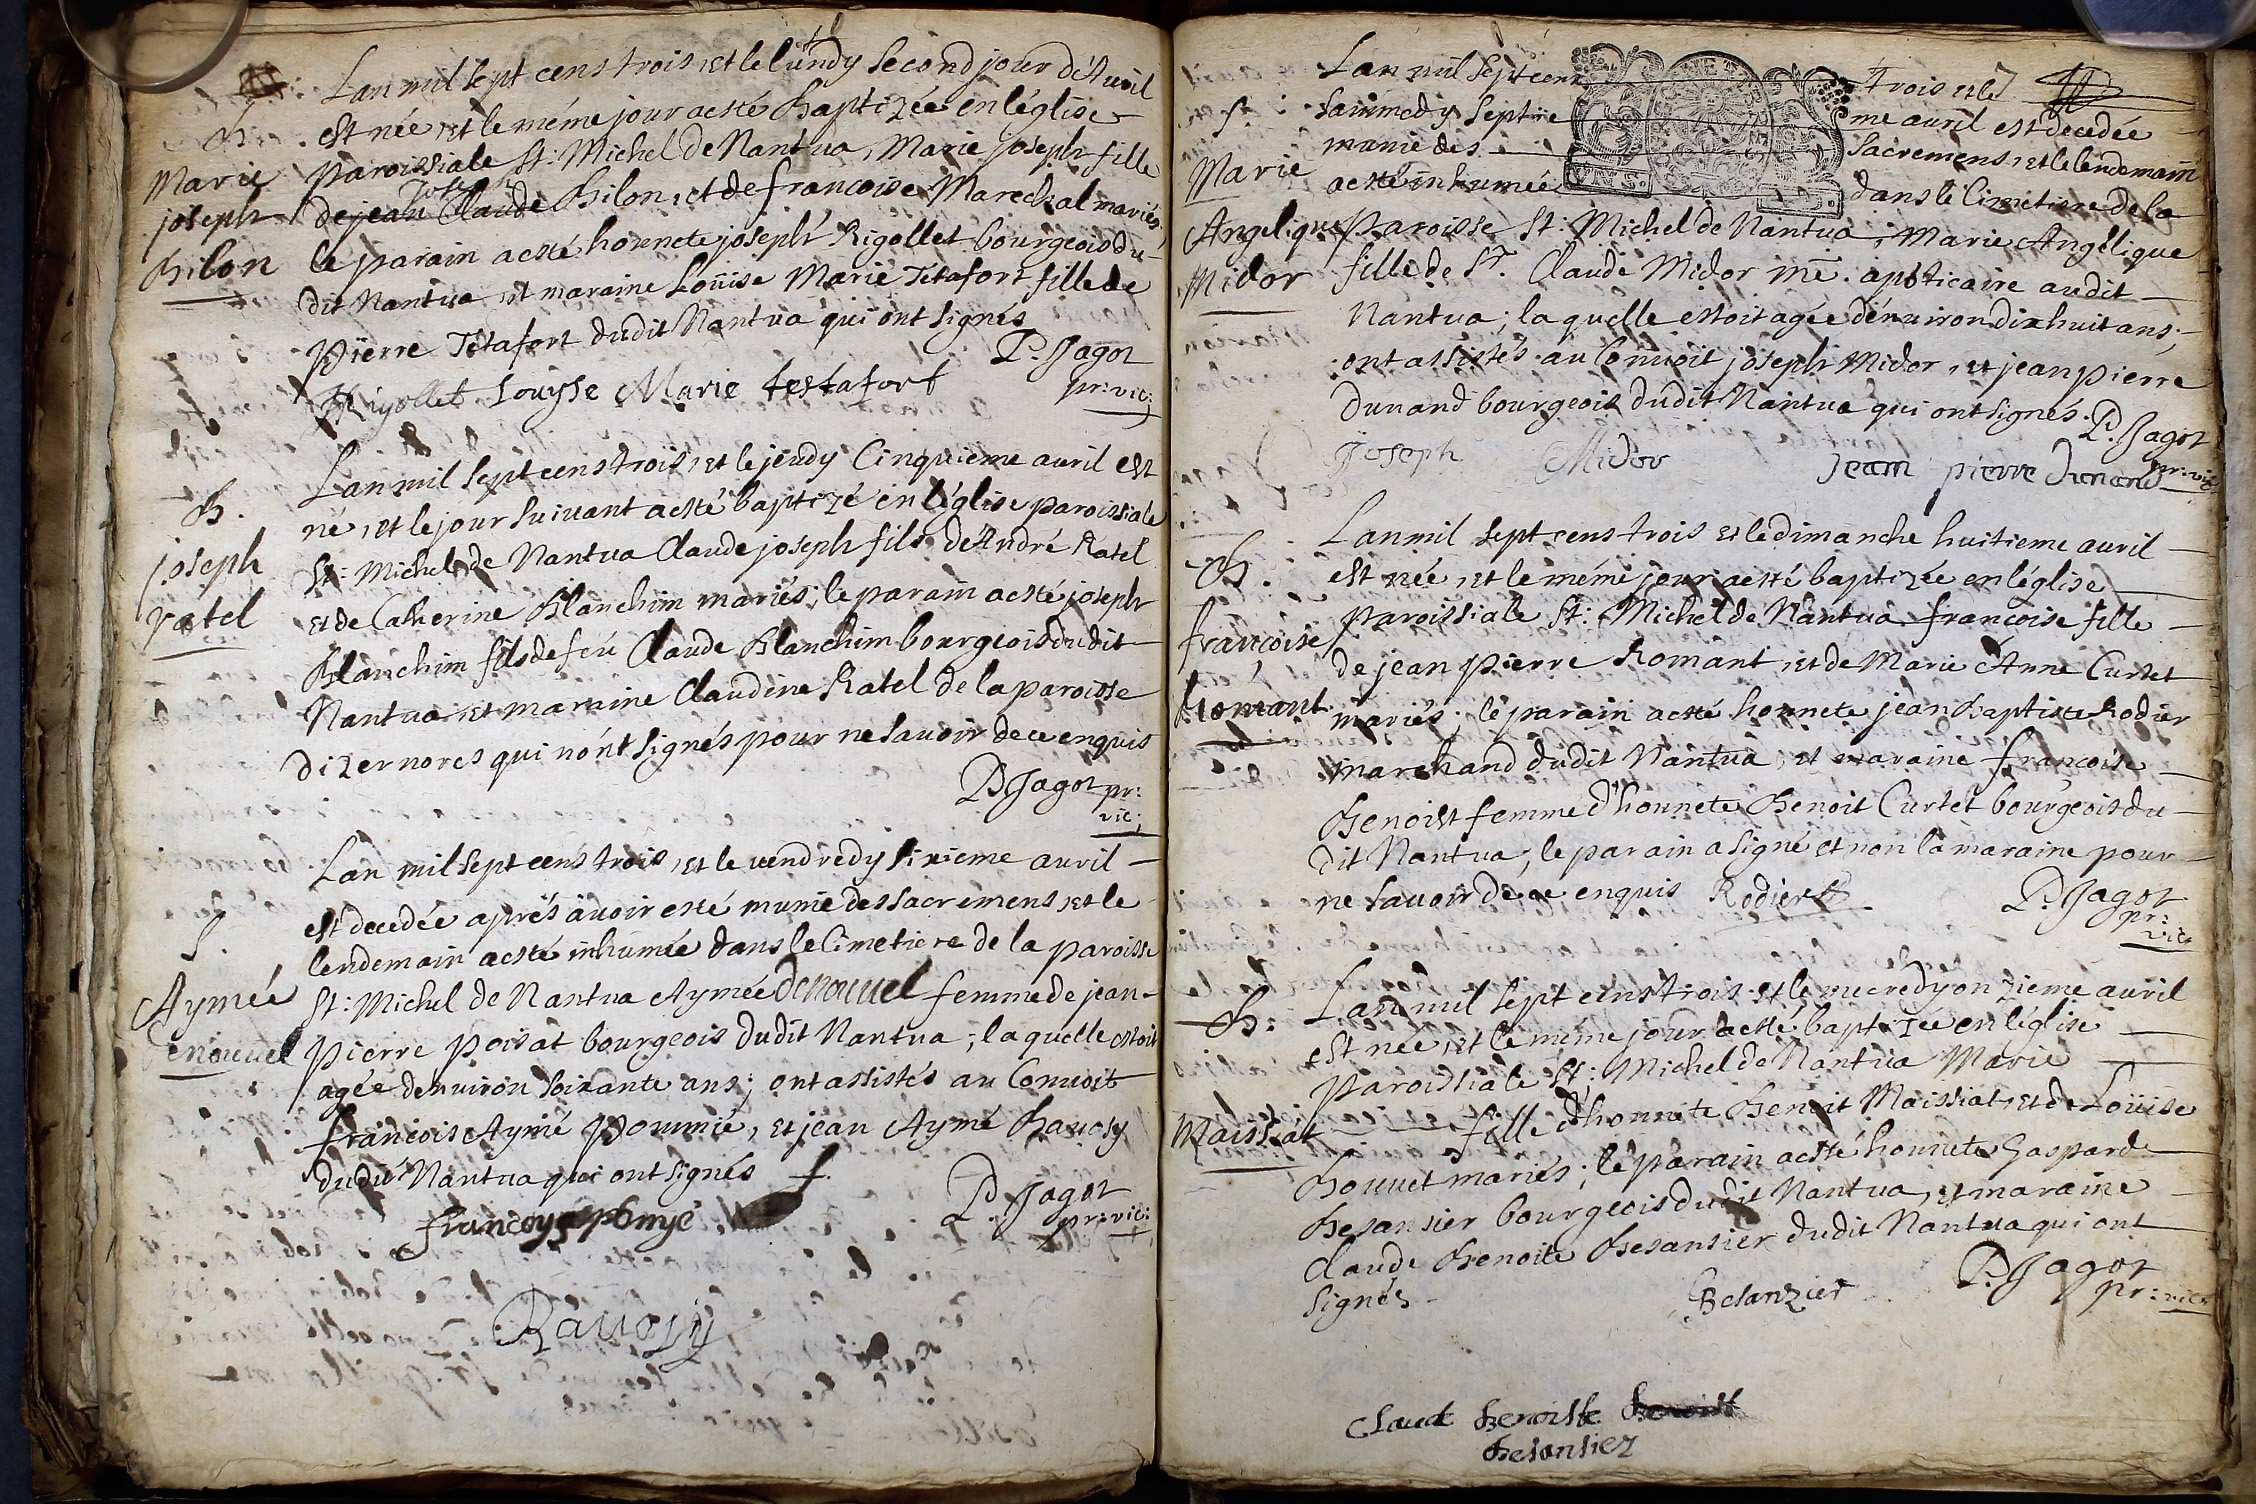 B.
Marie
joseph
Bilon
Lan mil sept cens trois, et le lundy second jour d'Avril
est née, et le méme jour a esté baptizée en léglise
paroissiale St: Michel de Nantua, Marie joseph fille
de jean Claude Bilon, et de francoise Marechal mariés;
le parain a esté honnete joseph Rigollet bourgeois du-
dit Nantua et maraine Loüise Marie Tétafort fille de
Pierre Tétafort dudit Nantua qui ont signés
P. Jagot
pr: vic:
Rigollet Louysse Marie testafort
B.
joseph
ratel
Lan mil sept cens trois, et le jeudy Cinquieme auril est
né, et le jour suiuant a esté baptizé en léglise paroissiale
St: Michel de Nantua Claude joseph fils d'André Ratel
et de Catherine Blanchim mariés; le parain a esté joseph
Blanchim fils de feu Claude Blanchim bourgeois dudit
Nantua et maraine Claudine Ratel de la paroisse
dizernores qui nónt signés pour ne sauoir de ce enquis
P. Jagot pr:
vic:
S.
Aymée
Denouuel
Lan mil sept cens trois, et le uendredy sixieme auril
est decedée aprés auoir esté munie des sacremens, et le
lendemain a esté inhumée dans le Cimetiere de la paroisse
St: Michel de Nantua Aymée denouuel femme de jean-
pierre poisat bourgeois dudit Nantua; la quelle estoit
agée denuiron soixante ans; ont assistés au Conuoit
francois Aymé poumié, et jean Aymé Rauosy
dudit Nantua qui ont signés
P. Jagot
pr: vic:
francoys pomyé
Rauosy
S.
Marie
Angelique
Midor
Lan mil sept cens trois et le
sammedy septie me auril est decedée
munie des sacremens, et le lendemain
a esté inhumée dans le Cimetiere de la
paroisse St: Michel de Nantua, Marie Angélique
fille de Sr. Claude Midor me. apoticaire audit
Nantua; la quelle estoit agée dénuiron dixhuit ans;
ont assistés au Conuoit joseph Midor, et jean pierre
Dunand bourgeois dudit Nantua qui ont signés. P. Jagot
pr: vic:
Joseph Midor Jean pierre Dunand
B.
françoise
Romant
Lan mil sept cens trois et le dimanche huitieme auril
est née, et le méme jour a esté baptizée en léglise
paroissiale St: Michel de Nantua francoise fille
de jean pierre Romant, et de Marie Anne Curtet
mariés; le parain a esté honnete jean Baptiste Rodier
marchand dudit Nantua, et maraine francoise
Benoist femme d'honnete Benoit Curtet bourgeois du-
dit Nantua; le parain a signé et non la maraine pour
ne sauoir de ce enquis Rodier
P. Jagot
pr:
vic:
B:
Maissiat
Lan mil sept cens trois et le mecredy onzieme auril
est née, et le méme jour a esté baptizée en léglise
paroissiale St: Michel de Nantua Marie
fille d'honnete Benoit Maissiat, et de Loüise
Bouuet mariés; le parain a esté honnete Gaspard
Besansier bourgeois dudit Nantua, et maraine
Claude Benoite Besansier dudit Nantua qui ont
signés
Besanzier
P. Jagot
pr: vic:
Claude Benoiste
Besansiez